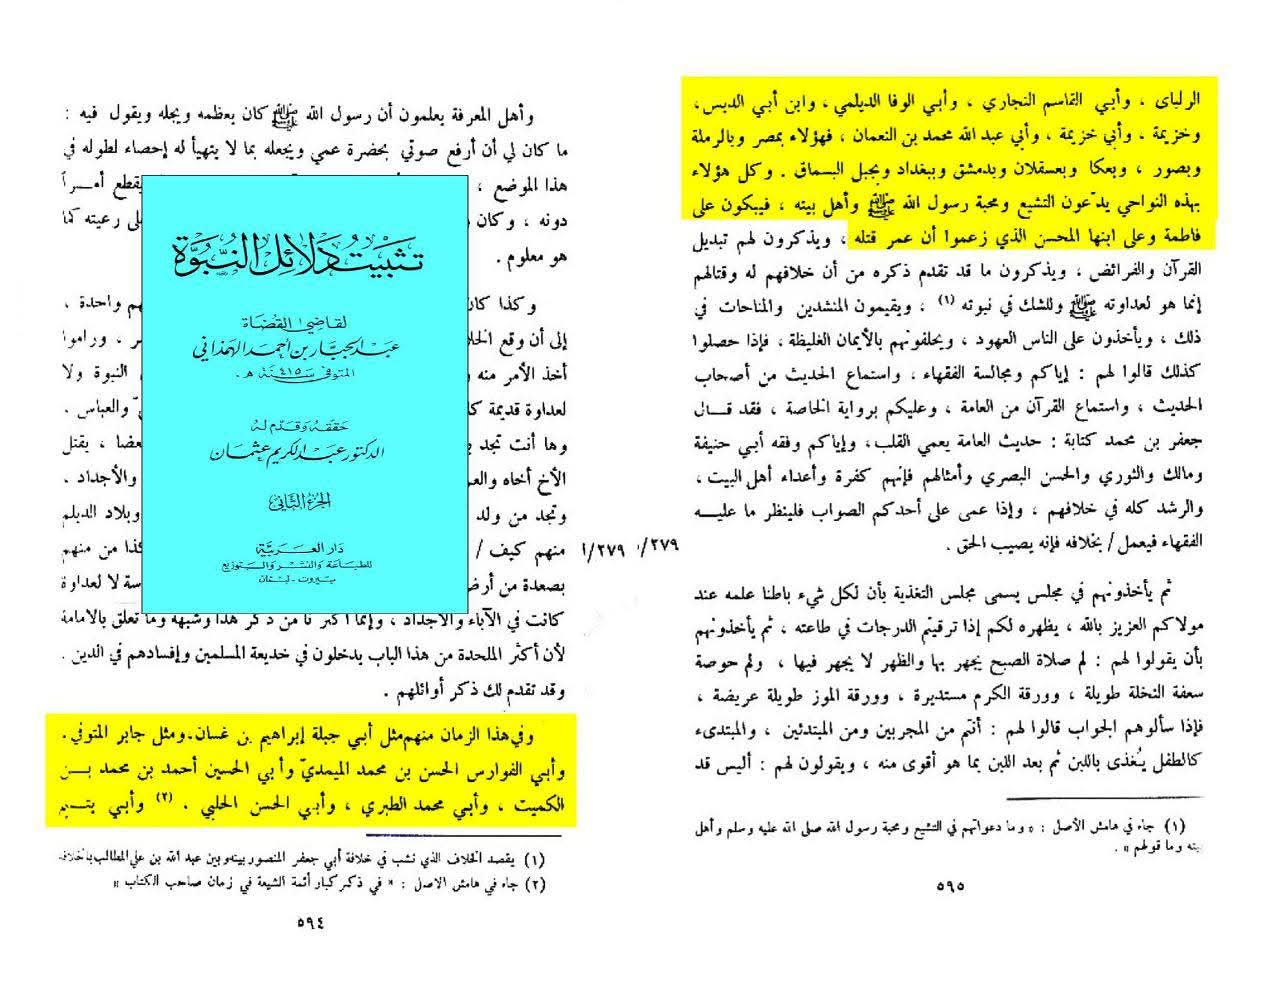 وأهل المعرفة يعلمون أن رسول الله ﷺ كان يعظمه ويجله ويقول فيه :
ما كان لي أن أرفع صوتي بحضرة عمي ويجعله بما لا يتهيأ له إحصاء لطوله في
هذا الموضع ، يقطع أمراً
دونه ، وكان على رعيته كما
هو معلوم .
وكذا كان هم واحدة ،
إلى أن وقع الخلا ر ، وراموا
أخذ الأمر منه النبوة ولا
لعداوة قديمة كا والعباس .
وها أنت تجد بعضا ، يقتل
الأخ أخاه والعم والأجداد .
وتجد من ولد وبلاد الديلم
منهم كيف / كذا من منهم
بصعدة من أرض سة لا لعداوة
كانت في الآباء والأجداد ، وإنما أكثرنا من ذكر هذا وشبهه وما تعلق بالامامة
لأن أكثر الملحدة من هذا الباب يدخلون في خديعة المسلمين وإفسادهم في الدين .
وقد تقدم لك ذكر أوائلهم .
وفي هذا الزمان منهم مثل أبي جبلة إبراهيم بن غسان . ومثل جابر المتوفي .
وأبي الفوارس الحسن بن محمد الميمديّ وأبي الحسين أحمد بن محمد بـن
الكميت ، وأبي محمد الطبري ، وأبي الحسن الحلبي . (٢) وأبي يتيم
(١) يقصد الخلاف الذي نشب في خلافة أبي جعفر المنصور بينه وبين عبد الله بن علي المطالب بالخلافة
(٢) جاء في هامش الاصل : « في ذكر كبار أئمة الشيعة في زمان صاحب الكتاب »
٥٩٤
تثبيت دلائل النبوة
لقاضي القضاة
عبد الجبار بن أحمد الهمذاني
المتوفى سنة ٤١٥ هـ .
حققه وقدم له
الدكتور عبد الكريم عثمان
الجزء الثاني
دار العربية
للطباعة والنشر والتوزيع
بيروت - لبنان
٢٧٩/ا
٢٧٩/ا
الرلباى ، وأبي القاسم النجاري ، وأبي الوفا الديلمي ، وابن أبي الديس ،
وخزيمة ، وأبي خزيمة ، وأبي عبد الله محمد بن النعمان ، فهؤلاء بمصر وبالرملة
وبصور ، وبعكا وبعسقلان وبدمشق وببغداد وبجبل البسماق . وكل هؤلاء
بهذه النواحي يدّعون التشيع ومحبة رسول الله ﷺ وأهل بيته ، فيبكون على
فاطمة وعلى ابنها المحسن الذي زعموا أن عمر قتله ، ويذكرون لهم تبديل
القرآن والفرائض ، ويذكرون ما قد تقدم ذكره من أن خلافهم له وقتالهم
إنما هو لعداوته ﷺ وللشك في نبوته (١) ، ويقيمون المنشدين والمناحات في
ذلك ، ويأخذون على الناس العهود ، ويحلفونهم بالأيمان الغليظة ، فإذا حصلوا
كذلك قالوا لهم : إياكم ومجالسة الفقهاء ، واستماع الحديث من أصحاب
الحديث ، واستماع القرآن من العامة ، وعليكم برواية الخاصة ، فقد قـال
جعفر بن محمد كتابة : حديث العامة يعمي القلب ، وإياكم وفقه أبي حنيفة
ومالك والثوري والحسن البصري وأمثالهم فإنهم كفرة وأعداء أهل البيت ،
والرشد كله في خلافهم ، وإذا عمى على أحدكم الصواب فلينظر ما عليـه
الفقهاء فيعمل / بخلافه فإنه يصيب الحق .
ثم يأخذونهم في مجلس يسمى مجلس التغذية بأن لكل شيء باطنا علمه عند
مولاكم العزيز بالله ، يظهره لكم إذا ترقيتم الدرجات في طاعته ، ثم يأخذونهم
بأن يقولوا لهم : لم صلاة الصبح يجهر بها والظهر لا يجهر فيها ، ولم حوصة
سعفة النخلة طويلة ، وورقة الكرم مستديرة ، وورقة الموز طويلة عريضة ،
فإذا سألوهم الجواب قالوا لهم : أنتم من المجربين ومن المبتدئين ، والمبتدىء
كالطفل يُغذى باللبن ثم بعد اللبن بما هو أقوى منه ، ويقولون لهم : أليس قد
(١) جاء في هامش الأصل : « وما دعواتهم في التشيع ومحبة رسول الله صلى الله عليه وسلم وأهل
بيته وما قولهم » .
٥٩٥